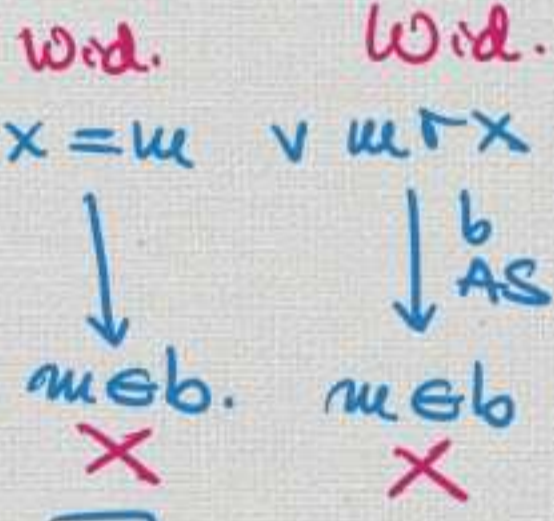 Wid. Wid.
x = m v m r x
b
AS
m ∈ b. m ∈ b